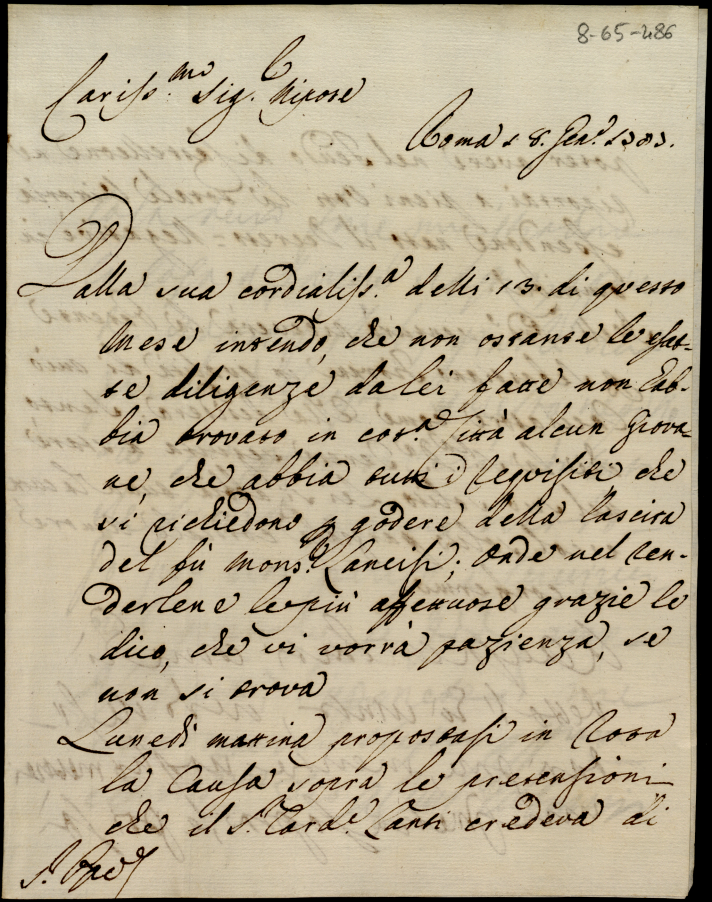 8-65-486
Cariss.mo Sig.r Nipote
Roma 18. Gen.o
Dalla sua cordialiss.a delli 13. di questo
Mese intendo, che non ostante le esat-
te diligenze da lei fatte non hab-
bia trovato in cot.a Città alcun Giova-
ne, che abbia tutti i requisiti che
si richiedono p godere della lascita
del fù Mons.r Lancisi; Onde nel ren-
derlene le più affettuose grazie le
dico, che vi vorrà pazienza, se
non si trova
Lunedi mattina propostasi in Rota
la Causa sopra le pretensioni
che il S.r Card.e credeva di